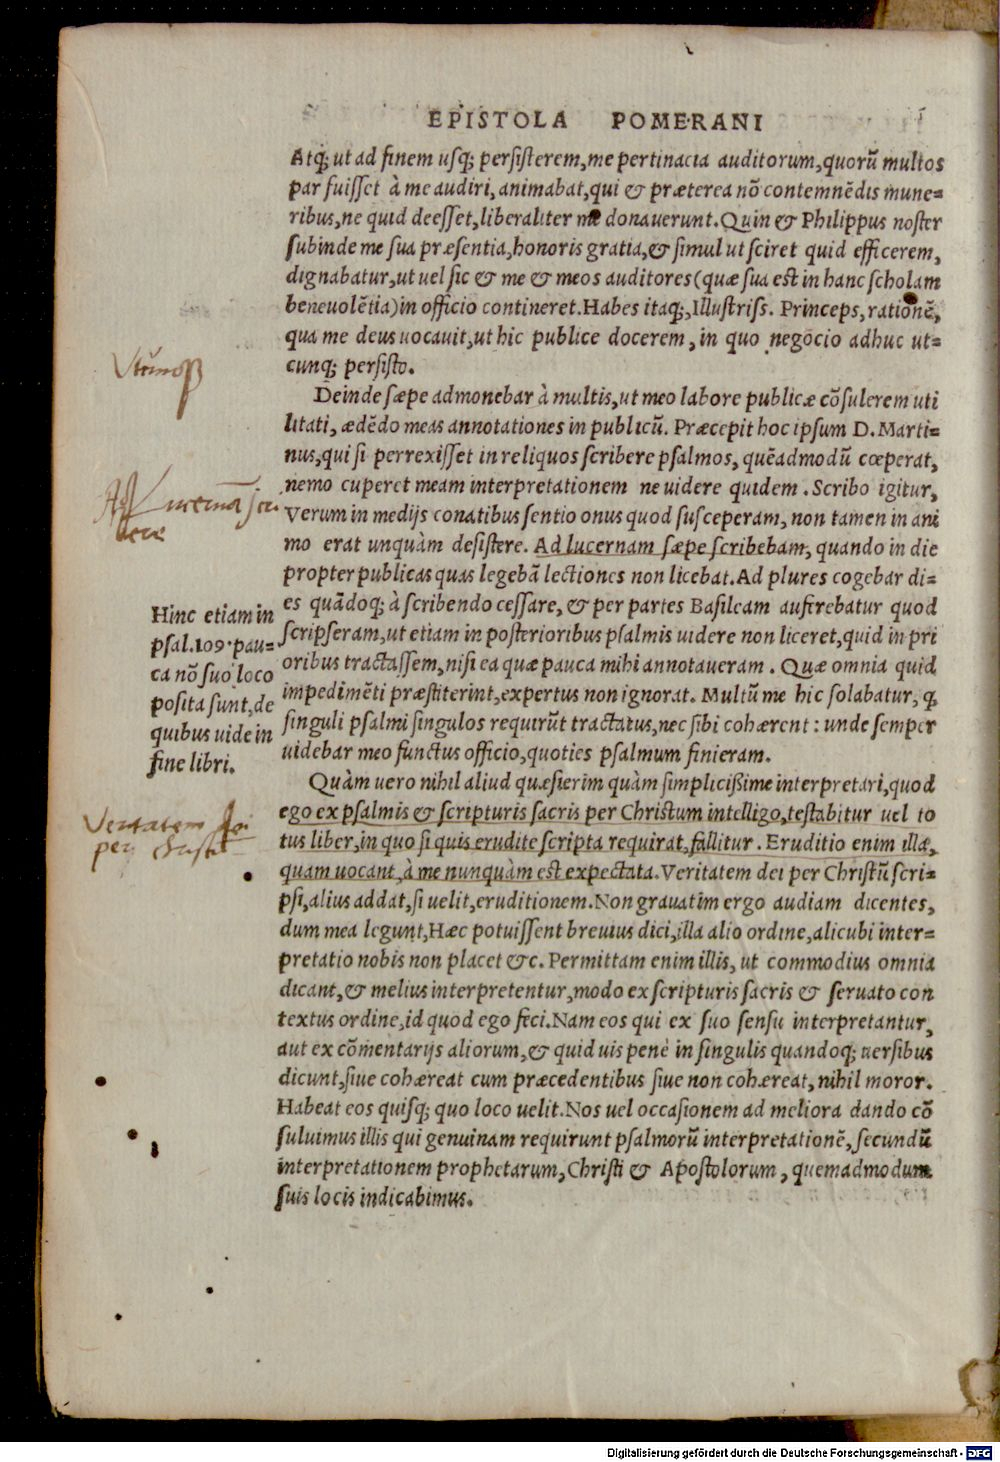 EPISTOLA POMERANI
Atq; ut ad finem usq; persisterem, me pertinacia auditorum, quorũ multos
par fuisset à me audiri, animabat, qui & præterea nõ contemnẽdis mune-
ribus, ne quid deesset, liberaliter me donauerunt. Quin & Philippus noster
subinde me sua præsentia, honoris gratia, & simul ut sciret quid efficerem,
dignabatur, ut uel sic & me & meos auditores (quæ sua est in hanc scholam
beneuolẽtia) in officio contineret. Habes itaq;, Illustriss. Princeps, rationẽ,
qua me deus uocauit, ut hic publice docerem, in quo negocio adhuc ut-
cunq; persisto.
Deinde sæpe admonebar à multis, ut meo labore publicæ cõsulerem uti
litati, ædẽdo meas annotationes in publicũ. Præcepit hoc ipsum D. Marti-
nus, qui si perrexisset in reliquos scribere psalmos, quẽadmodũ cœperat,
nemo cuperet meam interpretationem ne uidere quidem. Scribo igitur,
Ad Lucernã scri
bere
Verum in medijs conatibus sentio onus quod susceperam, non tamen in ani
mo erat unquàm desistere. Ad lucernam sæpe scribebam, quando in die
propter publicas quas legebã lectiones non licebat. Ad plures cogebar di-
es quãdoq; à scribendo cessare, & per partes Basileam auferebatur quod
scripseram, ut etiam in posterioribus psalmis uidere non liceret, quid in pri
oribus tractassem, nisi ea quæ pauca mihi annotaueram. Quæ omnia quid
impedimẽti præstiterint, expertus non ignorat. Multũ me hic solabatur, q̃
singuli psalmi singulos requirũt tractatus, nec sibi cohærent: unde semper
uidebar meo functus officio, quoties psalmum finieram.
Hinc etiam in
psal. 109. pau-
ca nõ suo loco
posita sunt, de
quibus uide in
fine libri.
Quàm uero nihil aliud quæsierim quàm simplicißime interpretari, quod
ego ex psalmis & scripturis sacris per Christum intelligo, testabitur uel to
tus liber, in quo si quis erudite scripta requirat, fallitur. Eruditio enim illæ,
quam uocant, à me nunquàm est expectata. Veritatem dei per Christũ scri-
psi, alius addat, si uelit, eruditionem. Non grauatim ergo audiam dicentes,
dum mea legunt, Hæc potuissent breuius dici, illa alio ordine, alicubi inter-
pretatio nobis non placet &c. Permittam enim illis, ut commodius omnia
dicant, & melius interpretentur, modo ex scripturis sacris & seruato con
textus ordine, id quod ego feci. Nam eos qui ex suo sensu interpretantur,
aut ex cõmentarijs aliorum, & quid uis penè in singulis quandoq; uersibus
dicunt, siue cohæreat cum præcedentibus siue non cohæreat, nihil moror.
Habeat eos quisq; quo loco uelit. Nos uel occasionem ad meliora dando cõ
suluimus illis qui genuinam requirunt psalmorũ interpretationẽ, secundũ
interpretationem prophetarum, Christi & Apostolorum, quemadmodum
suis locis indicabimus.
Veritatem
per
Digitalisierung gefördert durch die Deutsche Forschungsgemeinschaft - DFG